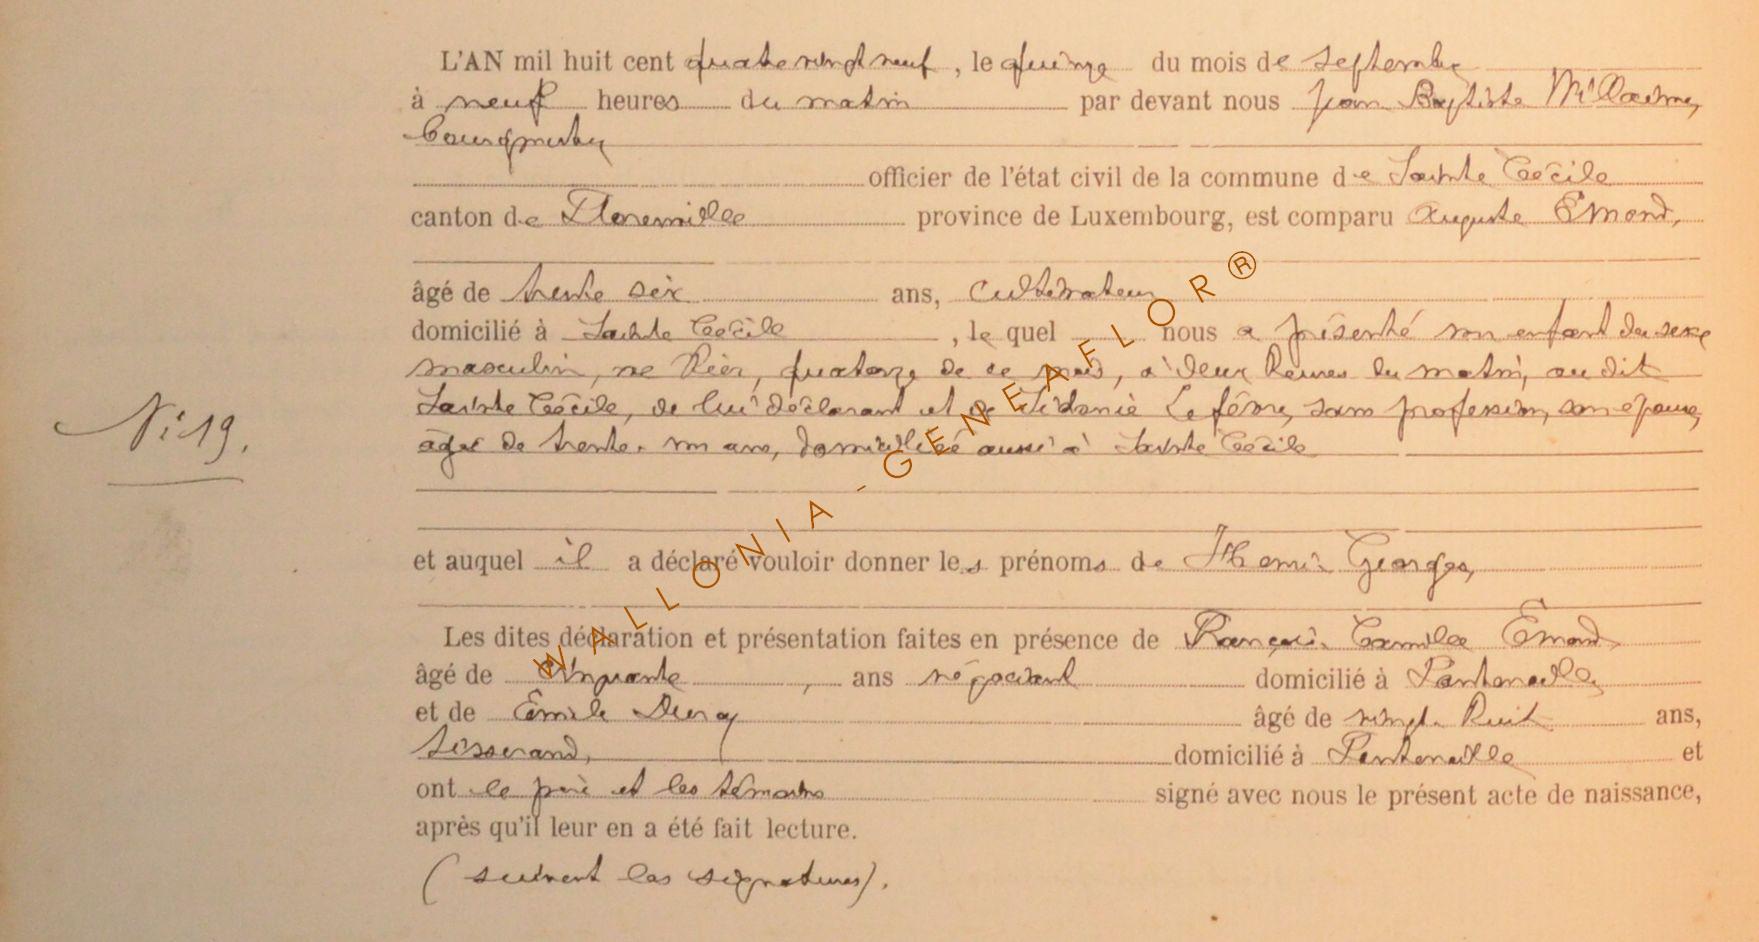 L'AN mil huit cent quatre vingt neuf, le quinze du mois de septembre
à neuf heures du matin par devant nous Jean Baptiste
bourgmestre
officier de l'état civil de la commune de Sainte Cécile
canton de Florenville province de Luxembourg, est comparu Auguste Emond,
âgé de trente six ans, cultivateur
domicilié à Sainte Cécile, le quel nous a présenté son enfant du sexe
masculin, né hier, quatorze de ce mois, à deux heures du matin, au dit
Sainte Cécile, de lui déclarant et de Sidonie Lefèvre, sans profession, son épouse,
âgée de trente-un ans, domiciliée aussi à Sainte Cécile
N: 19.
et auquel il a déclaré vouloir donner les prénoms de Henri Georges,
Les dites déclaration et présentation faites en présence de François Camille Emond,
âgé de cinquante, ans négociant domicilié à Fontenoille,
et de Emile âgé de vingt-huit ans,
tisserand, domicilié à Fontenoille et
ont le père et les témoins signé avec nous le présent acte de naissance,
après qu'il leur en a été fait lecture.
(suivent les signatures).
WALLONIA-GENEAFLOR®